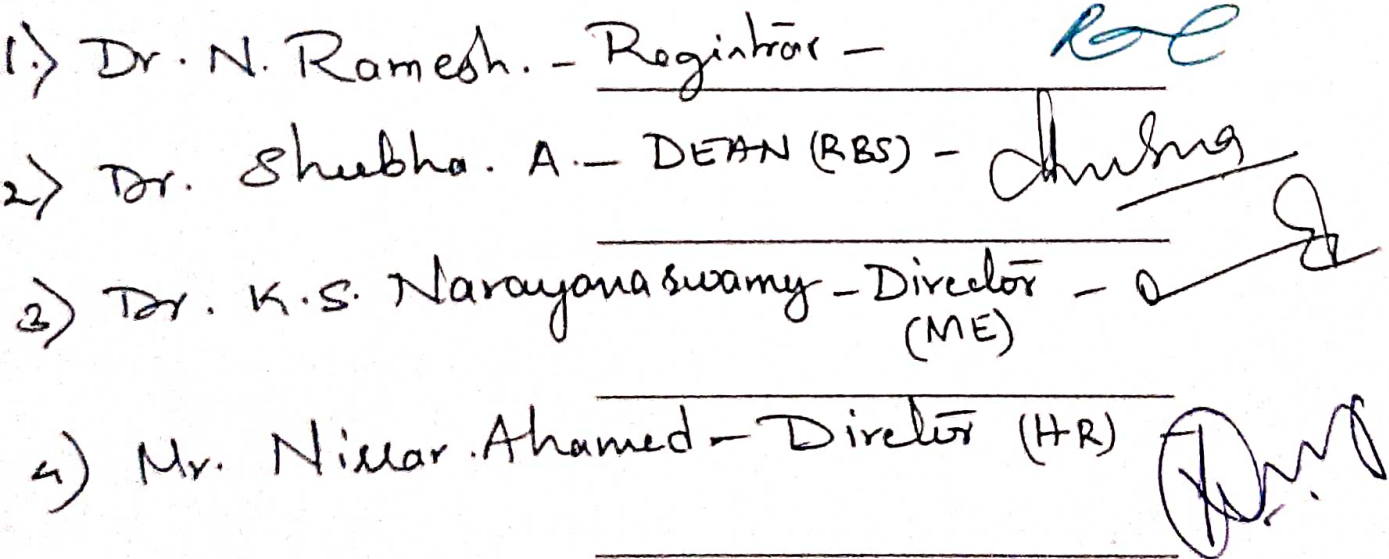 1.) Dr. N. Ramesh. - Registrar -
2) Dr. Shubha. A. - DEAN (RBS) -
3) Dr. K.S. Narayanaswamy - Director -
(ME)
4) Mr. Nissar Ahamed - Director (HR)